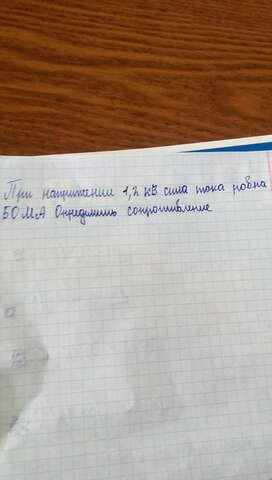 При напряжении 1,2 кВ сила тока равна
50 мА Определить сопротивление